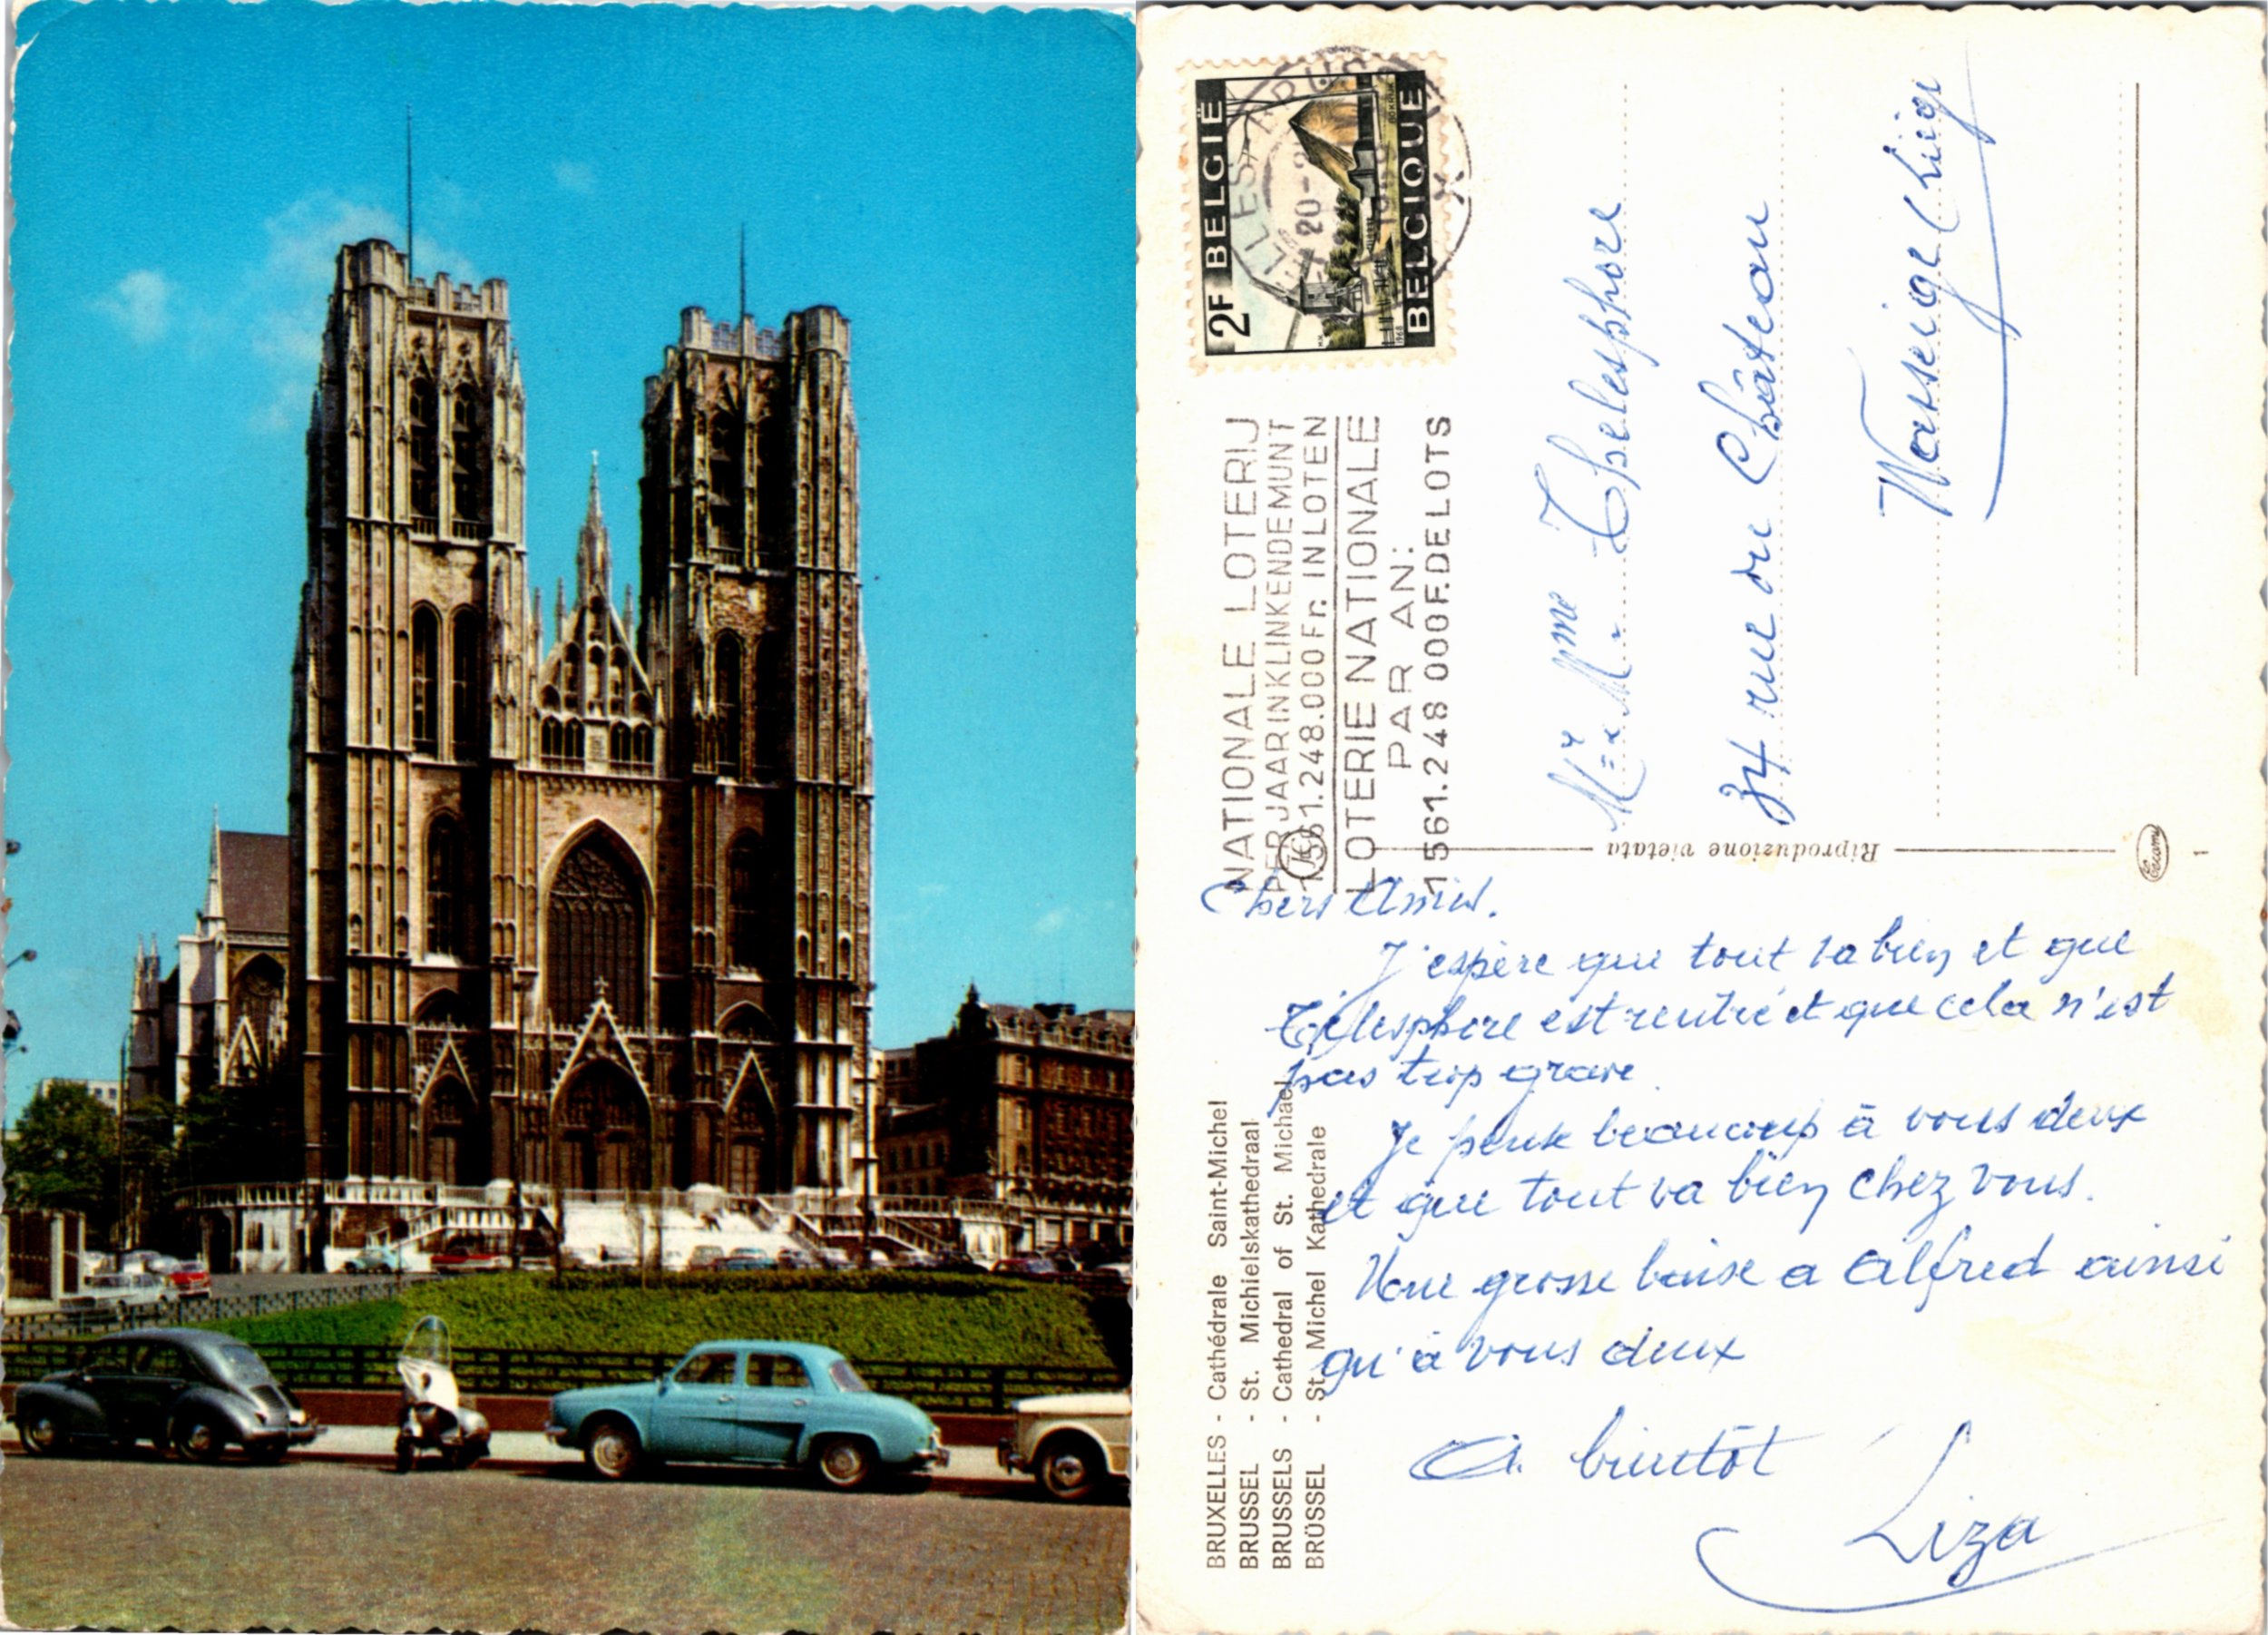 2F BELGIË
BELGIQUE
NATIONALE LOTERIJ
PER JAAR IN KLINKENDE MUNT
1.561.248.000 Fr. IN LOTEN
LOTERIE NATIONALE
PAR AN:
1561.248 000F. DE LOTS
Mr & Mme Thelesphore
34 rue du Château
Wasseige (Liège
Riproduzione vietata
Cecami
Chers Amis.
J'espère que tout va bien et que
Télesphore est rentré et que cela n'est
pas trop grave.
Je pense beaucoup à vous deux
et que tout va bien chez vous.
Une grosse baise a Alfred ainsi
qu'à vous deux
A bientôt
Liza
BRUXELLES - Cathédrale Saint-Michel
BRUSSEL - St. Michielskathedraal
BRUSSELS - Cathedral of St. Michael
BRÜSSEL - St. Michel Kathedrale